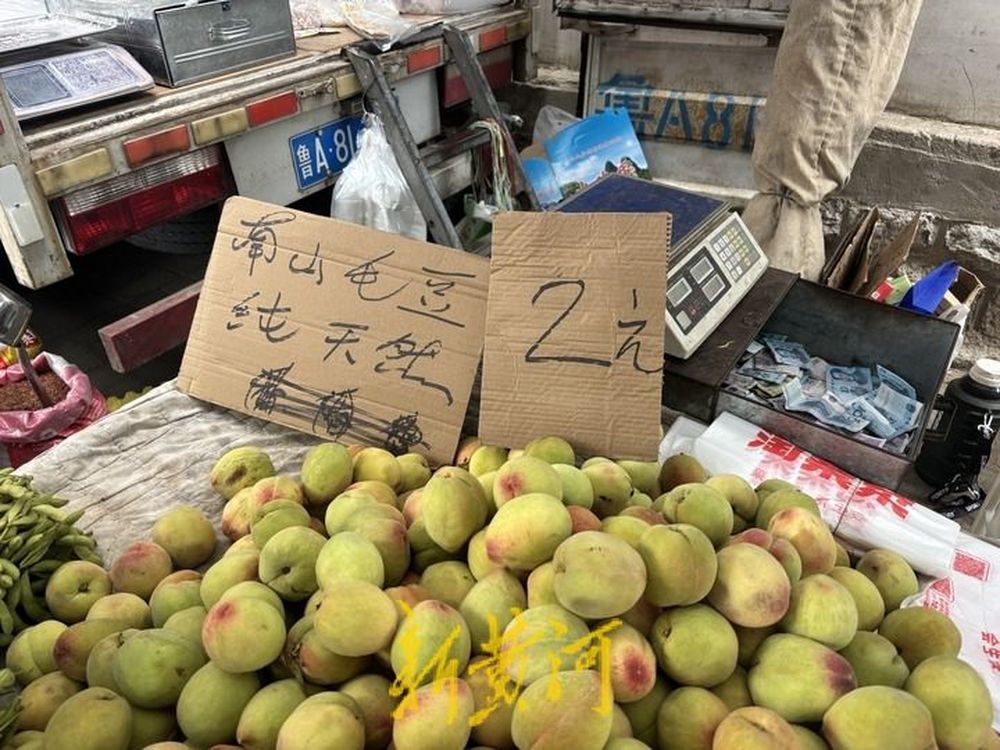 鲁A·81
鲁A81
南山毛豆
纯天然
2元
新黄河